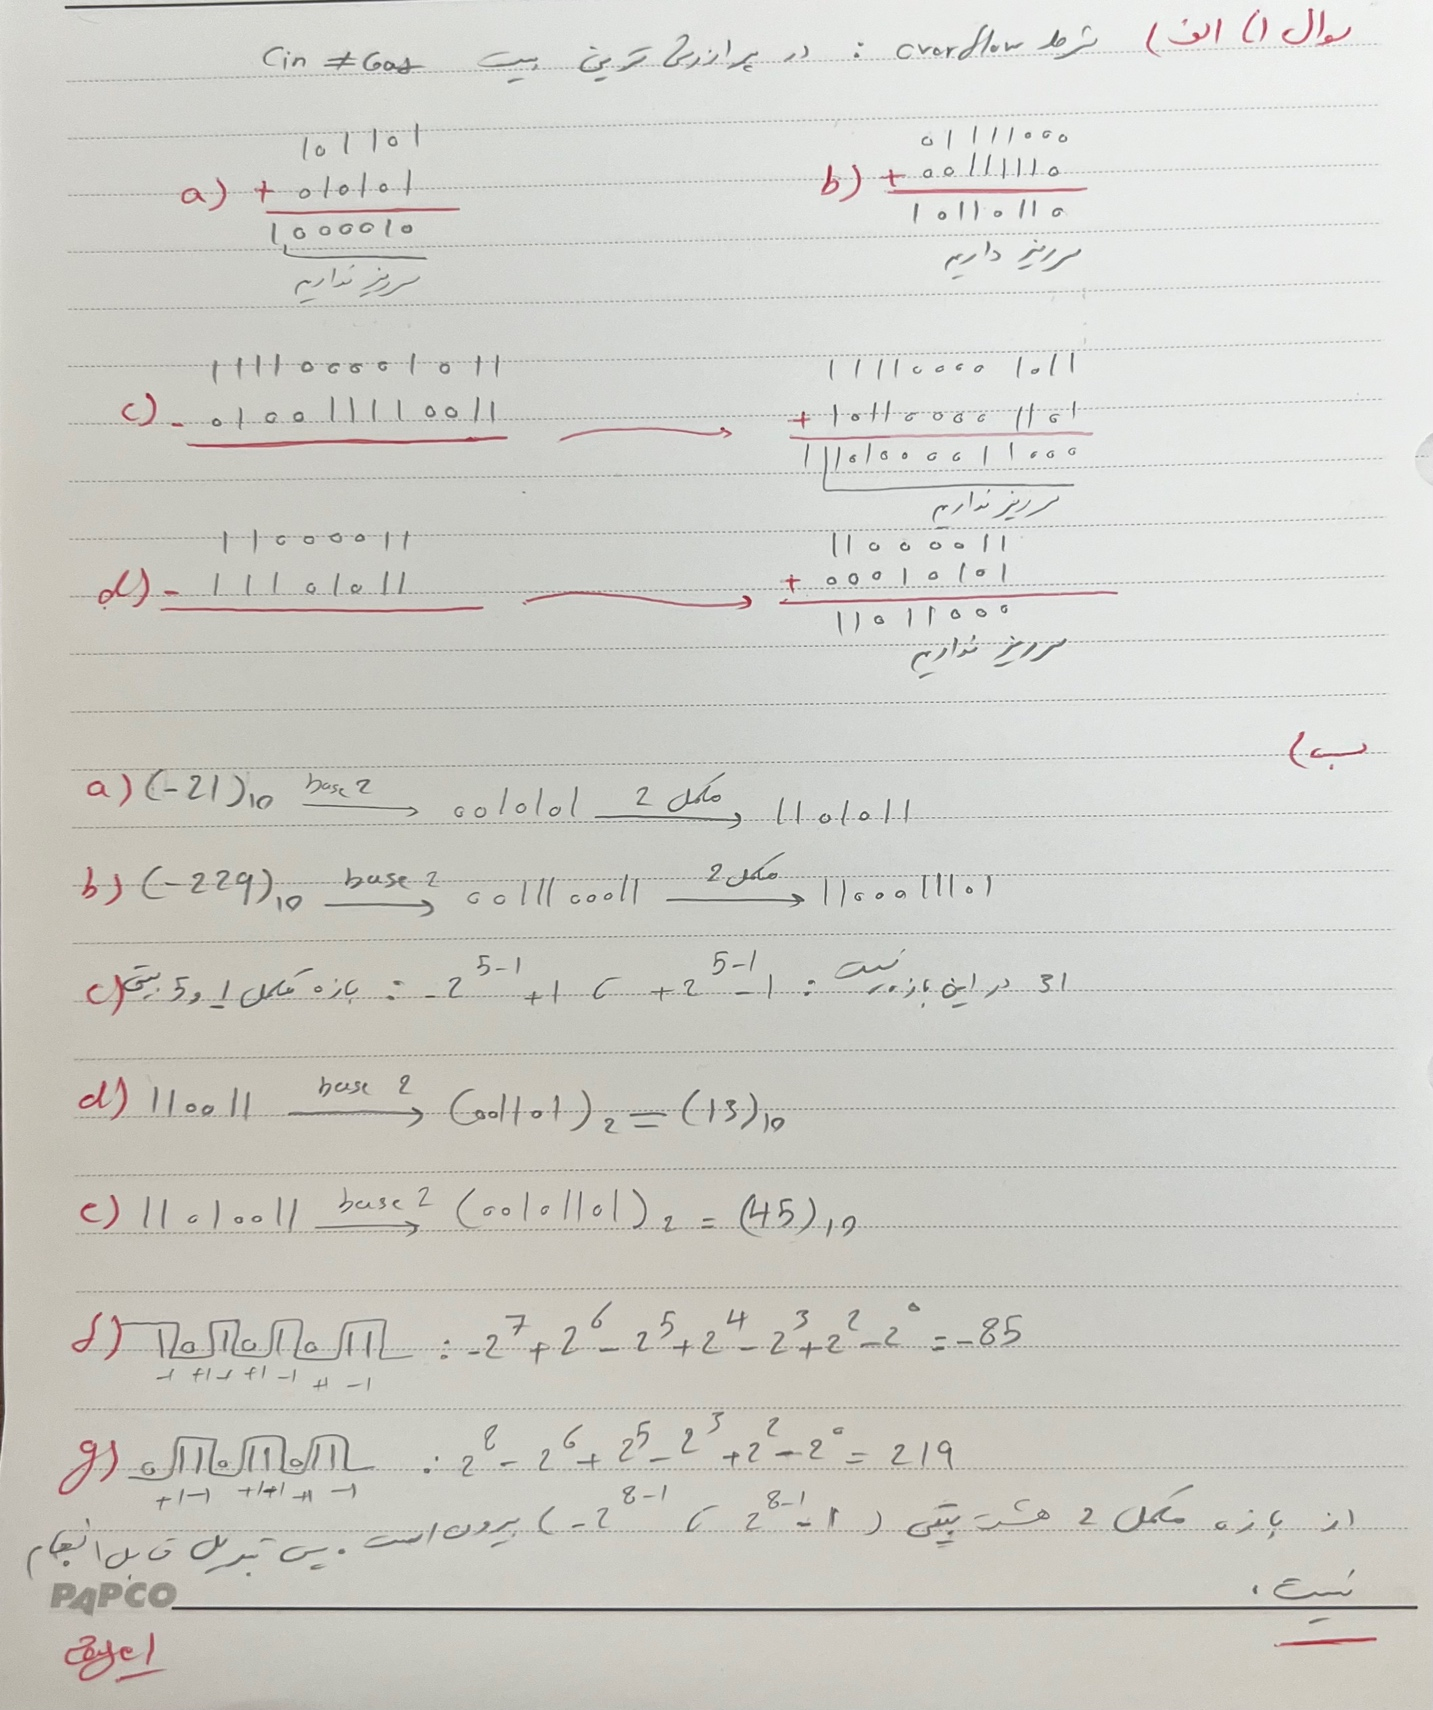 سوال ۱) الف) شرط overflow : در پر ارزش ترین بیت Cin ≠ Cout
a) 101101
+ 010101
1000010
سرریز نداریم
b) 01111000
+ 00111110
10110110
سرریز داریم
c) 111100001011
- 010011110011
→
111100001011
+ 101100001101
1101000011000
سرریز نداریم
d) 11000011
- 11101011
→
11000011
+ 00010101
11011000
سرریز نداریم
ب)
a) (-21)10 base 2 → 0010101 مکمل 2 → 1101011
b) (-229)10 base 2 → 0011100011 مکمل 2 → 1100011101
c) بازه مکمل 1 و 5 بیتی : -2^5-1 +1 و +2^5-1 -1 : 31 در این بازه نیست
d) 110011 base 2 → (001101)2 = (13)10
e) 11010011 base 2 → (00101101)2 = (45)10
f) 10101011 : -2^7 + 2^6 - 2^5 + 2^4 - 2^3 + 2^2 - 2^0 = -85
-1 +1 -1 +1 -1 +1 -1
g) 011011011 : 2^8 - 2^6 + 2^5 - 2^3 + 2^2 - 2^0 = 219
+1 -1 +1 -1 +1 -1
از بازه مکمل 2 هشت بیتی (-2^8-1 و 2^8-1 -1) بیرون است. پس تبدیل قابل انجام
نیست.
PAPCO
Page 1